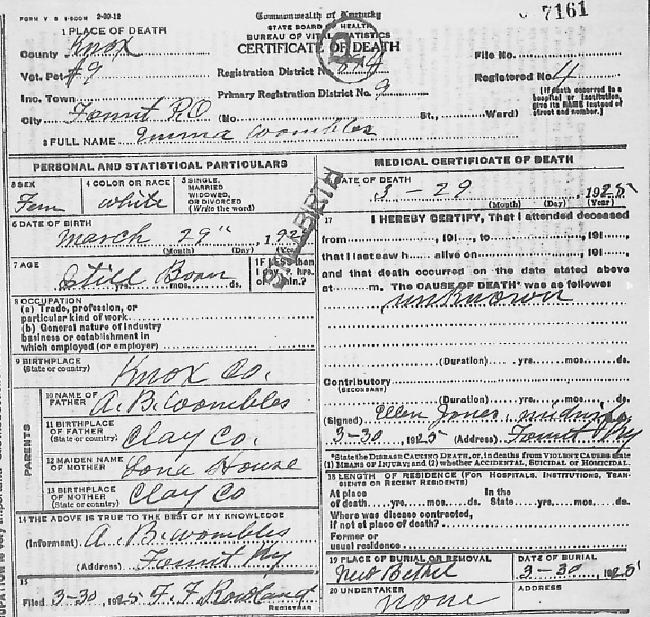 FORM V S 2-20-12
Commonwealth of Kentucky
7161
STATE BOARD OF HEALTH
BUREAU OF VITAL STATISTICS
CERTIFICATE OF DEATH
1 PLACE OF DEATH
County Knox
File No.
Vot. Pct #9
Registration District No.
Registered No. 4
Inc. Town
Primary Registration District No. 9
[If death occurred in a hospital or institution, give its NAME instead of street and number.]
City Fount RO (No. St., Ward)
2 FULL NAME Emma Woombles
PERSONAL AND STATISTICAL PARTICULARS
3 SEX Fem
4 COLOR OR RACE White
5 SINGLE, MARRIED WIDOWED, OR DIVORCED (Write the word)
STILLBIRTH
6 DATE OF BIRTH
March 29" 192
(Month) (Day) (Year)
7 AGE Still Born
yrs. mos. ds.
IF LESS than 1 day, hrs. or min.?
8 OCCUPATION
(a) Trade, profession, or particular kind of work
(b) General nature of industry business or establishment in which employed (or employer)
9 BIRTHPLACE (State or country) Knox Co.
PARENTS
10 NAME OF FATHER A. B. Woombles
11 BIRTHPLACE OF FATHER (State or country) Clay Co.
12 MAIDEN NAME OF MOTHER Lona House
13 BIRTHPLACE OF MOTHER (State or country) Clay Co
14 THE ABOVE IS TRUE TO THE BEST OF MY KNOWLEDGE
(Informant) A. B. Wombles
(Address) Fount Ky
15
Filed 3-30 1925 F. F. Rowland
REGISTRAR
MEDICAL CERTIFICATE OF DEATH
DATE OF DEATH
3 - 29 1925
(Month) (Day) (Year)
17 I HEREBY CERTIFY, That I attended deceased
from , 191 , to , 191 ,
that I last saw h alive on , 191 ,
and that death occurred on the date stated above
at m. The CAUSE OF DEATH* was as follows:
unknown
(Duration) yrs. mos. ds.
Contributory
(SECONDARY)
(Duration) yrs. mos. ds.
(Signed) Ellen Jones, midwife
3-30 1925 (Address) Fount Ky
*State the DISEASE CAUSING DEATH, or, in deaths from VIOLENT CAUSES state (1) MEANS OF INJURY; and (2) whether ACCIDENTAL, SUICIDAL OR HOMICIDAL.
18 LENGTH OF RESIDENCE (FOR HOSPITALS, INSTITUTIONS, TRANSIENTS OR RECENT RESIDENTS)
At place of death yrs. mos. ds. In the State yrs. mos. ds.
Where was disease contracted, if not at place of death?
Former or usual residence
19 PLACE OF BURIAL OR REMOVAL New Bethel
DATE OF BURIAL 3-30 1925
20 UNDERTAKER none
ADDRESS